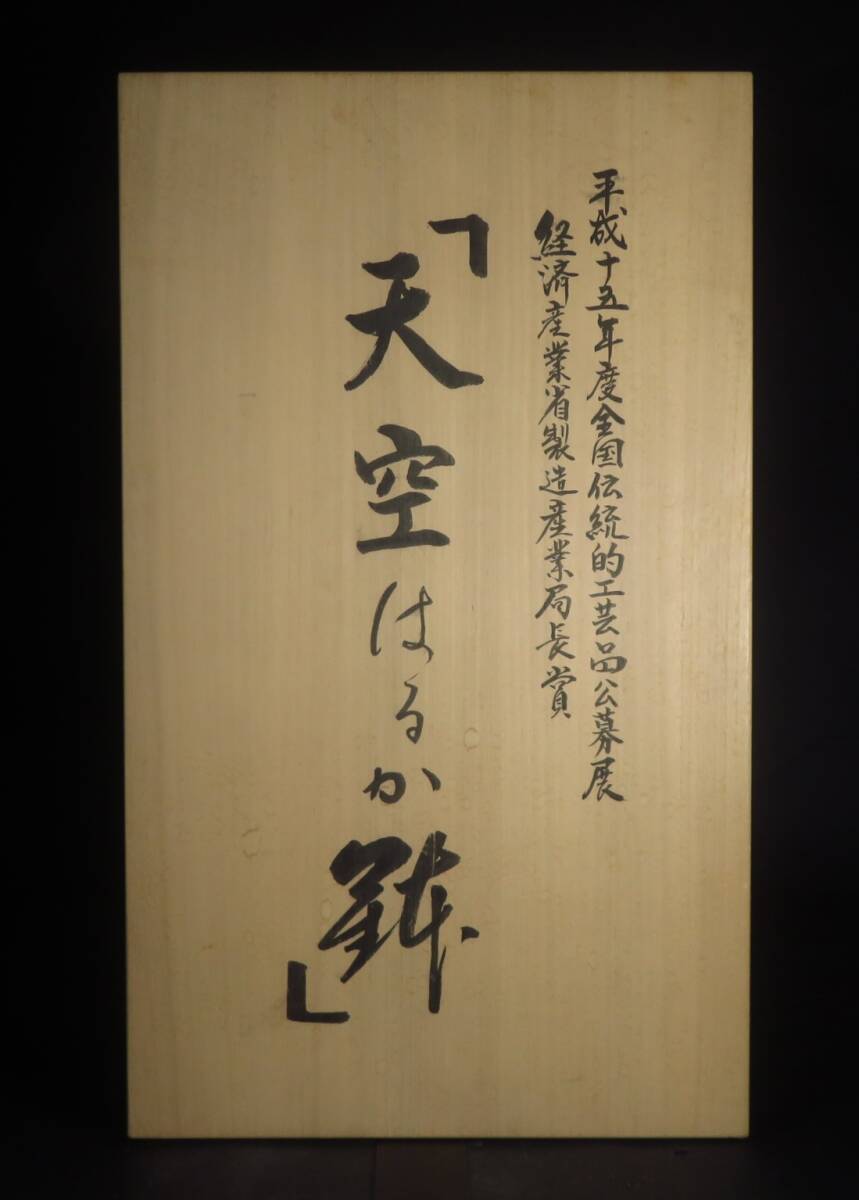 平成十五年度全国伝統的工芸品公募展
経済産業省製造産業局長賞
「天空はるか鉢」